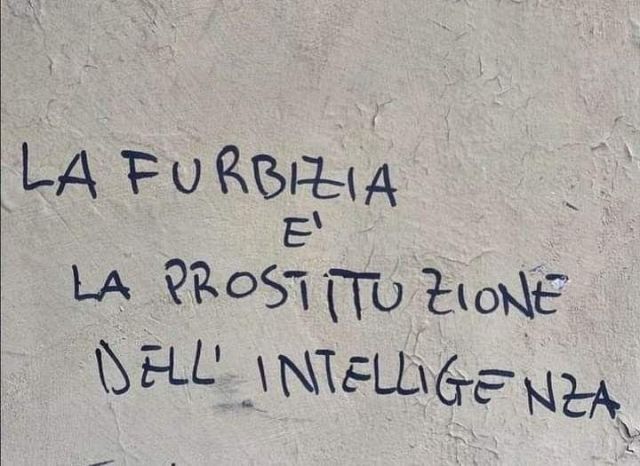 LA FURBIZIA
E'
LA PROSTITUZIONE
DELL' INTELLIGENZA